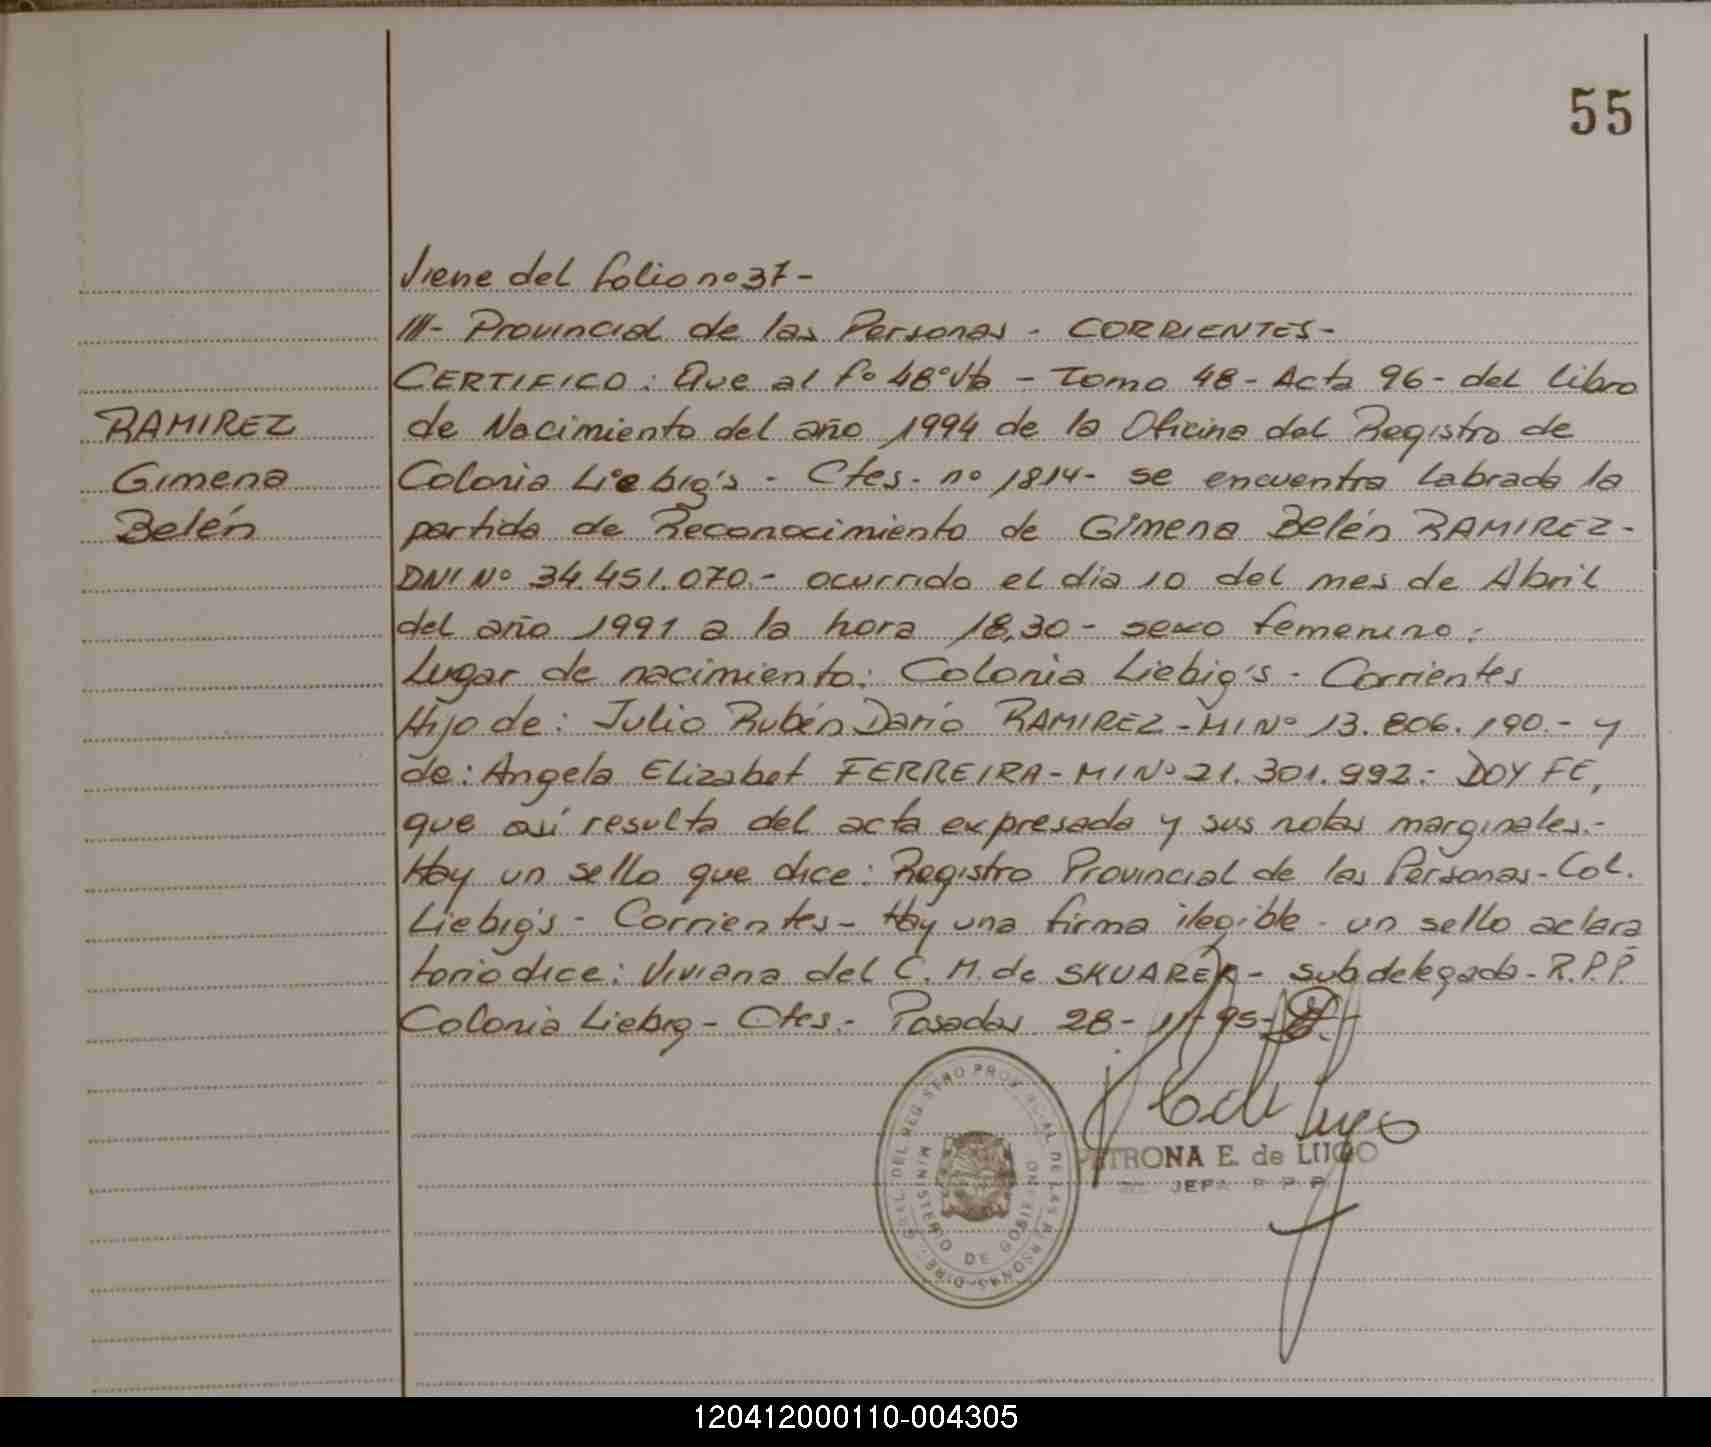 55
Viene del folio nº 37-
III- Provincial de las Personas - CORRIENTES-
CERTIFICO: Que al fº 48º Vto - Tomo 48 - Acta 96 - del libro
RAMIREZ
de Nacimiento del año 1994 de la Oficina del Registro de
Gimena
Colonia Liebig's - Ctes. nº 1814- se encuentra labrada la
Belén
partida de Reconocimiento de Gimena Belén RAMIREZ-
DNI Nº 34.451.070.- ocurrido el dia 10 del mes de Abril
del año 1991 a la hora 18,30 - sexo femenino:
Lugar de nacimiento: Colonia Liebig's - Corrientes
Hijo de: Julio Rubén Darío RAMIREZ - MI Nº 13.806.190.- y
de: Angela Elizabet FERREIRA - MI Nº 21.301.992.- DOY FE,
que así resulta del acta expresada y sus notas marginales.-
Hay un sello que dice: Registro Provincial de las Personas - Col.
Liebig's - Corrientes - Hay una firma ilegible - un sello aclara
torio dice: Viviana del C. M. de SKUAREK - subdelegada - R.P.P.
Colonia Liebig - Ctes.- Posadas 28-11-95-
DIREC. GRAL. DEL REGISTRO PROVINCIAL DE LAS PERSONAS
MINISTERIO DE GOBIERNO
PETRONA E. de LUGO
JEFA R P P
120412000110-004305